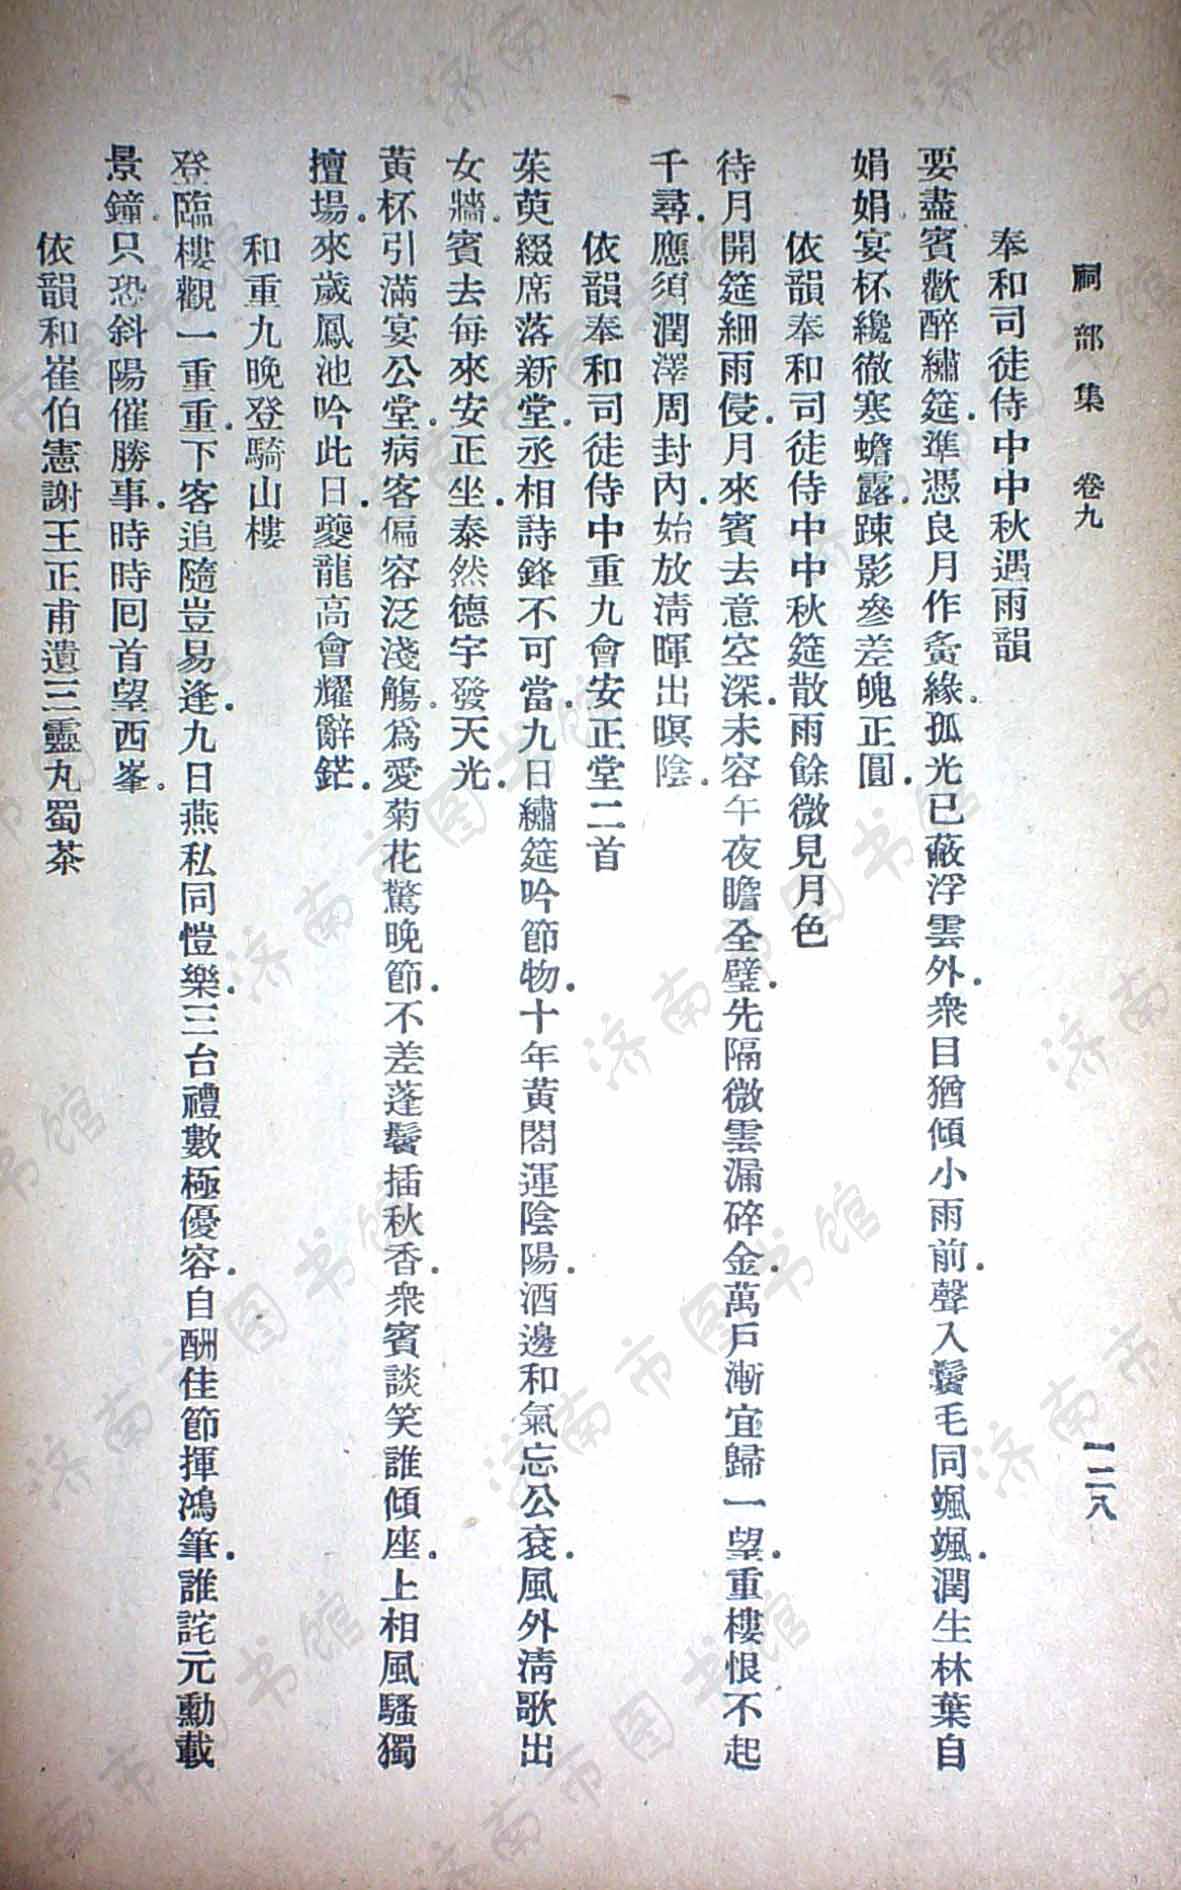 祠部集　卷九　一二八
奉和司徒侍中中秋遇雨韻
要盡賓歡醉繡筵．準憑良月作夤緣。孤光已蔽浮雲外．衆目猶傾小雨前．聲入鬢毛同颯颯．潤生林葉自
娟娟．宴杯纔徹寒蟾露．踈影參差魄正圓．
依韻奉和司徒侍中中秋筵散雨餘微見月色
待月開筵細雨侵．月來賓去意空深．未容午夜瞻全璧．先隔微雲漏碎金．萬戶漸宜歸一望．重樓恨不起
千尋．應須潤澤周封內．始放淸暉出暝陰．
依韻奉和司徒侍中重九會安正堂二首
茱萸綴席落新堂．丞相詩鋒不可當．九日繡筵吟節物．十年黃閤運陰陽．酒邊和氣忘公袞．風外淸歌出
女牆．賓去每來安正坐．泰然德宇發天光．
黃杯引滿宴公堂．病客偏容泛淺觴。爲愛菊花驚晚節．不差蓬鬢插秋香．衆賓談笑誰傾座．上相風騷獨
擅場．來歲鳳池吟此日．夔龍高會耀辭鋩．
和重九晚登騎山樓
登臨樓觀一重重．下客追隨豈易逢．九日燕私同愷樂．三台禮數極優容．自酬佳節揮鴻筆．誰詫元勳載
景鐘．只恐斜陽催勝事．時時囘首望西峯。
依韻和崔伯憲謝王正甫遺三靈丸蜀茶
济南市图书馆